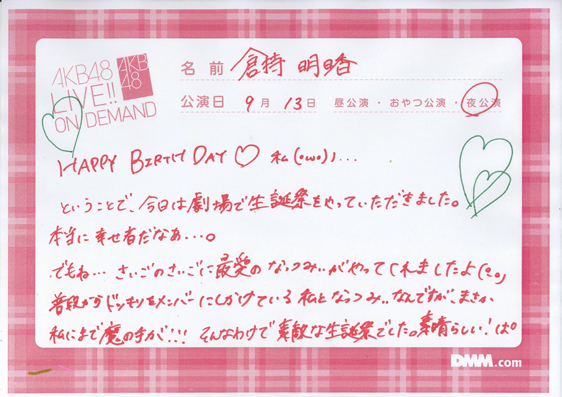 AKB48
LIVE!!
ON DEMAND
AKB
48
名前 倉持 明日香
公演日 9月 13日 昼公演・おやつ公演・夜公演
HAPPY BIRTHDAY♡ 私(ow<)ノ...
ということで、今日は劇場で生誕祭をやっていただきました。
本当に幸せ者だなぁ...。
でもね... さいごのさいごに最愛のなっつみぃがやってくれましたよ
普段からドッキリをメンバーにしかけている私となっつみぃなんですが、まさか
私にまで魔の手が!!! そんなわけで素敵な生誕祭でした。素晴らしい!
DMM.com